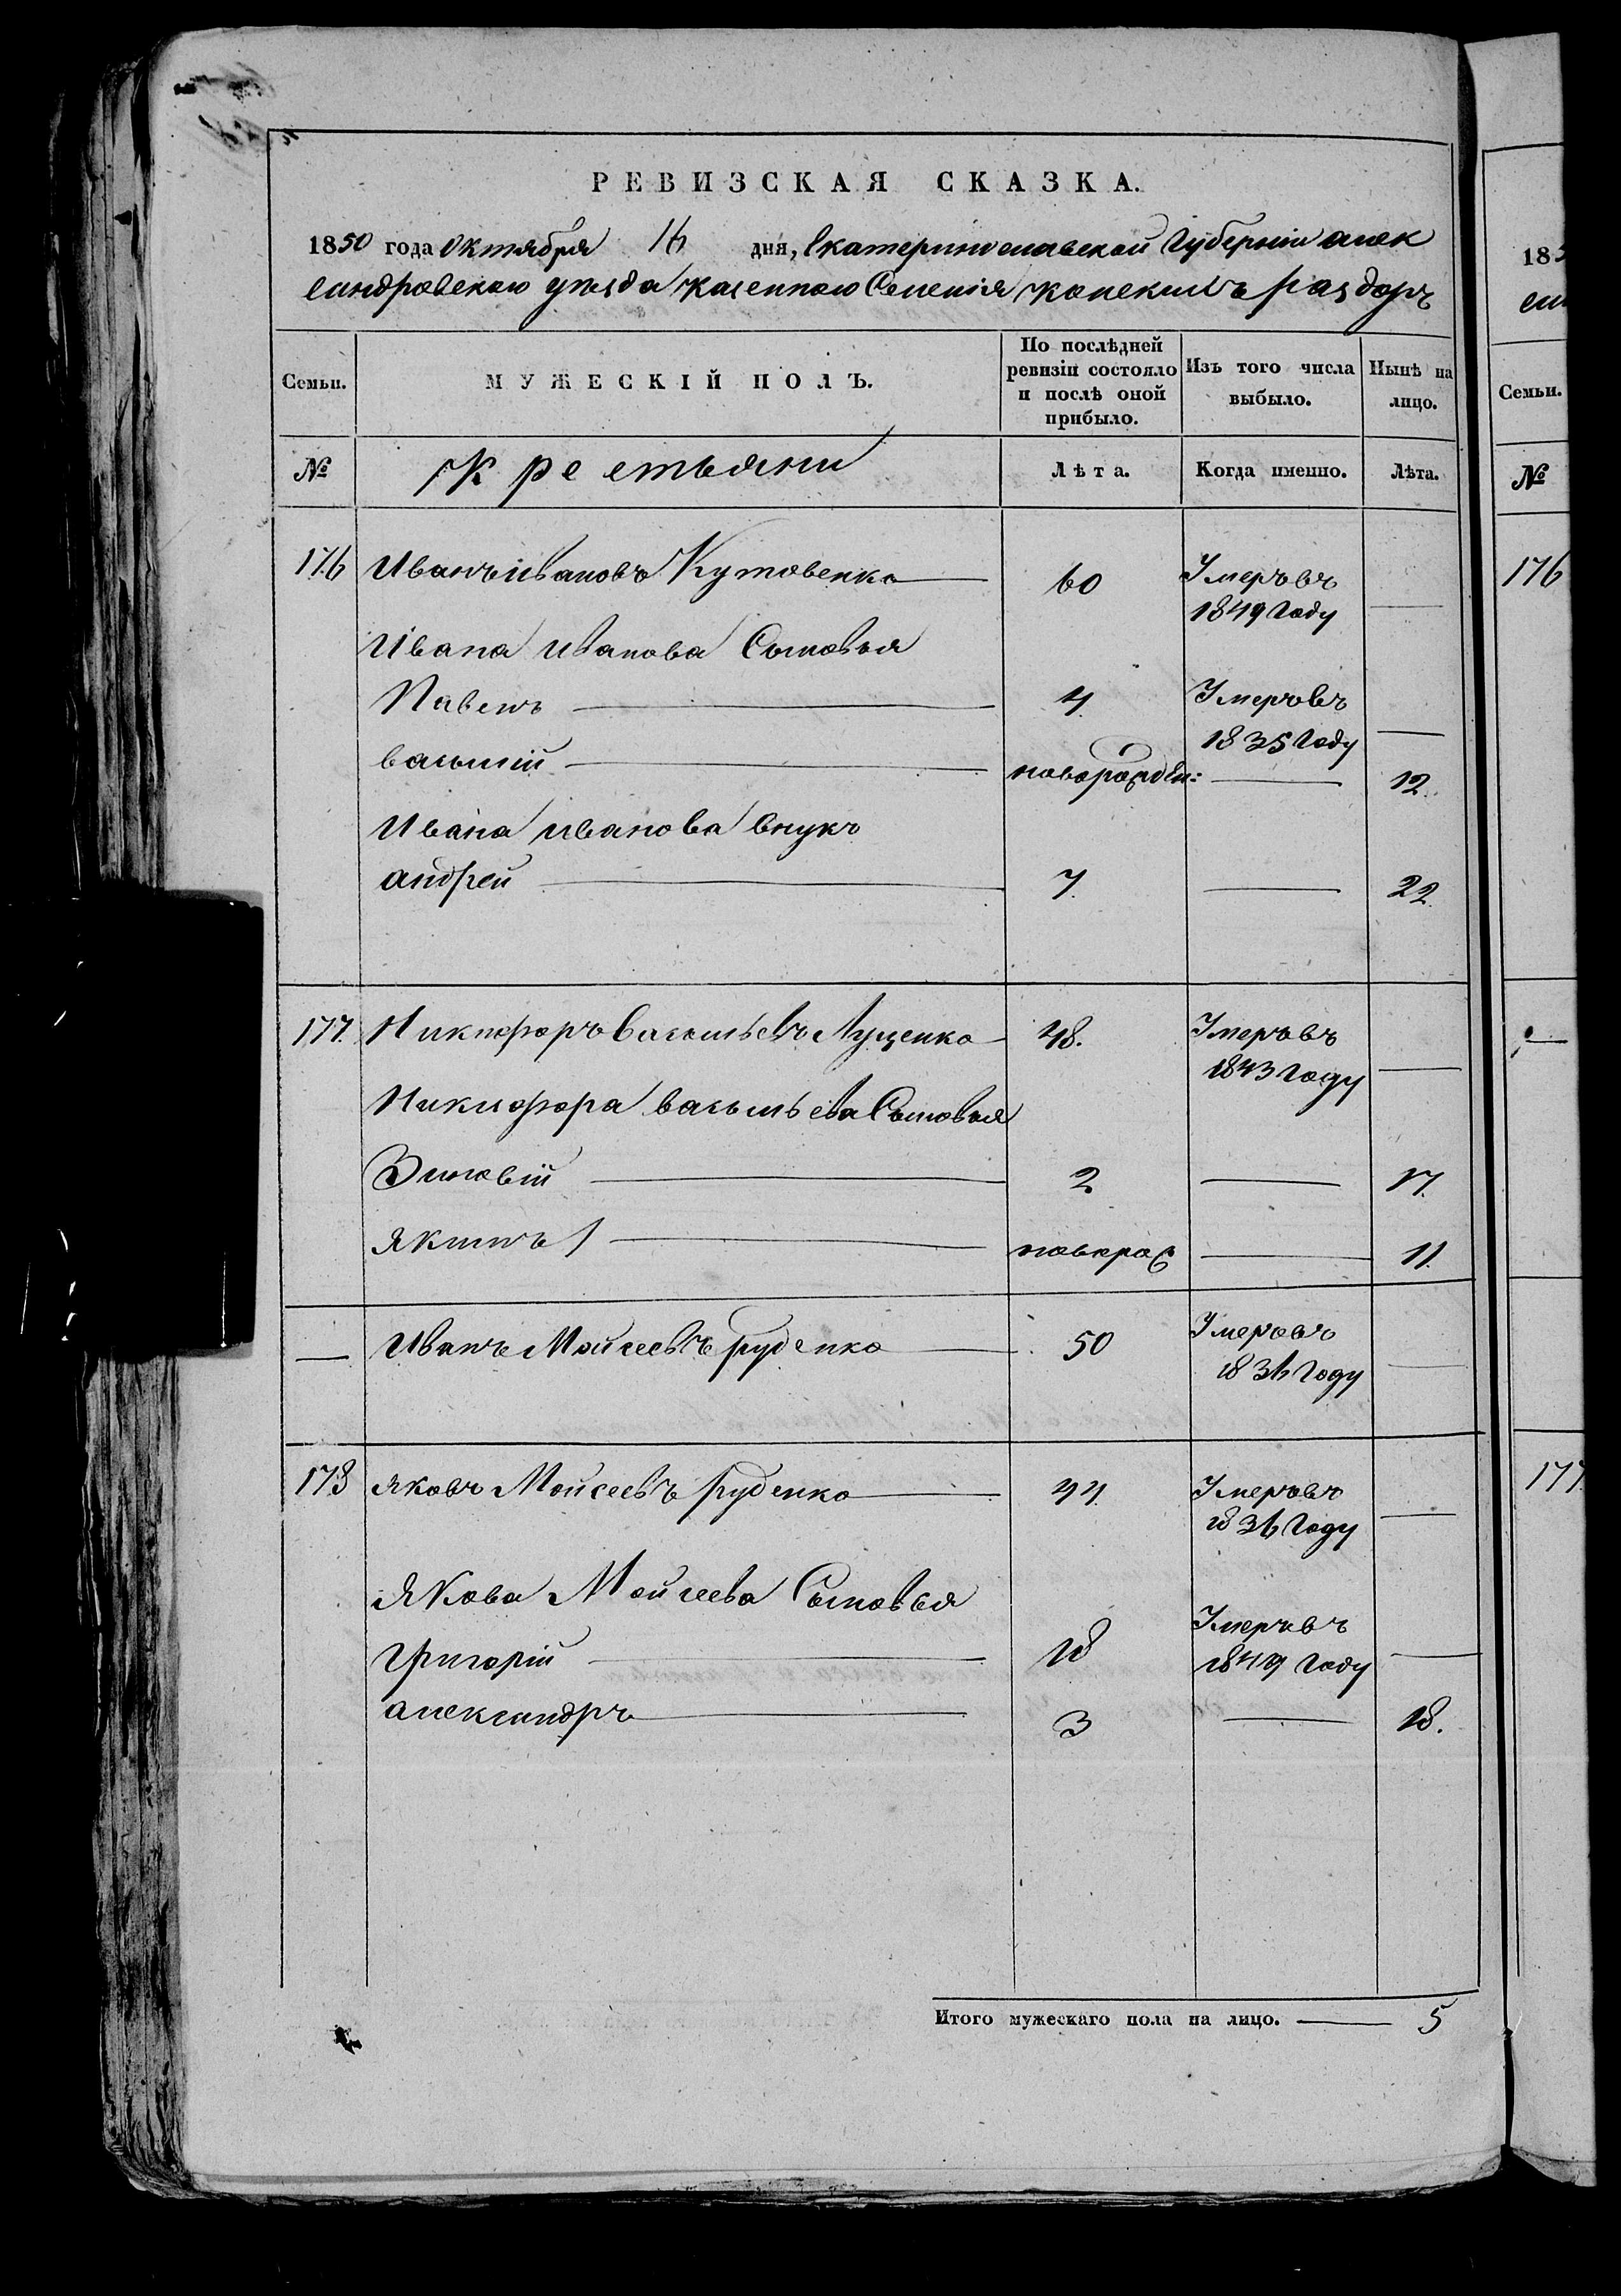 РЕВИЗСКАЯ СКАЗКА.
1850 года Октября 16 дня, Екатеринославской Губерніи алек
сандровскаго уѣзда казеннаго Селенія конскихъ раздоръ
Семьи. МУЖЕСКІЙ ПОЛЪ. По послѣдней ревизіи состояло и послѣ оной прибыло. Изъ того числа выбыло. Нынѣ на лицо.
№ Крестьяни Лѣта. Когда именно. Лѣта.
176 Иванъ ивановъ Кутовенко 60 Умеръ въ
1849 Году
Ивана иванова Сыновья
Павелъ 4. Умеръ въ
1835 Году
василій новорожден: 12.
Ивана иванова внукъ
андрей 7. 22.
177. Никифоръ Васильевъ Луценко 48. Умеръ въ
1843 Году
Никифора васильева Сыновья
Зиновій 2 17.
якимъ новорож 11.
Иванъ Мойсеевъ руденко 50 Умеръ въ
1836 Году
178 яковъ Мойсеевъ руденко 44. Умеръ въ
1836 Году
Якова Мойсеева Сыновья
Григорій 18 Умеръ въ
1849 Году
александръ 3 18.
Итого мужескаго пола на лицо. 5
185
сан
Семьи.
№
176
177.